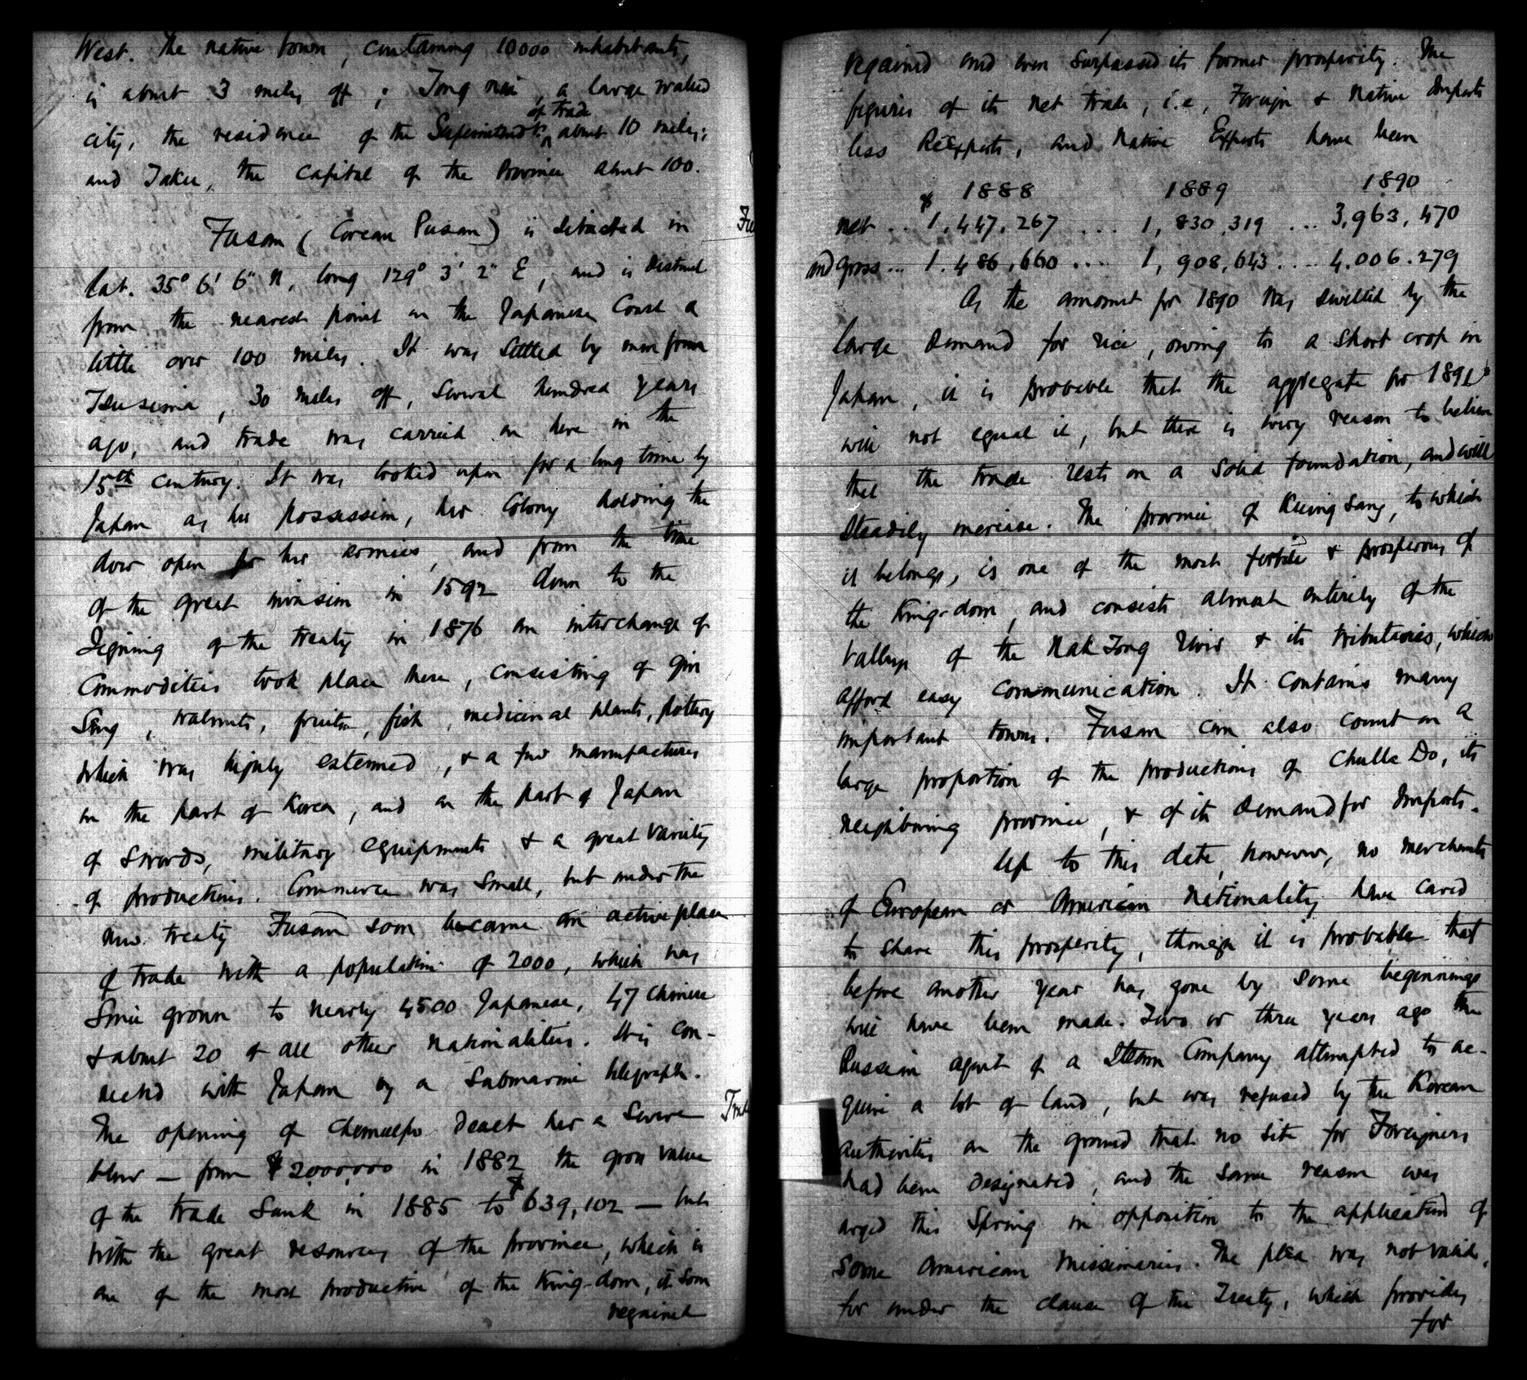 West. The native town, containing 10000 inhabitants,
is about 3 miles off; Tong nai, a large walled
of trade
city, the residence of the Superintendt. about 10 miles;
and Taku, the Capital of the Province about 100.
Fusan (Corean Pusan) is situated in
lat. 35° 6' 6" N, long 129° 3' 2" E, and is distant
from the nearest point on the Japanese Coast a
little over 100 miles. It was settled by men from
Tsusima, 30 miles off, several hundred years
ago, and trade was carried on here in the
15th century. It was looked upon for a long time by
Japan as her possession, her Colony holding the
door open for her armies, and from the time
of the great invasion in 1592 down to the
signing of the treaty in 1876 an interchange of
Commodities took place there, consisting of gin
Seng, walnuts, fruits, fish, medicinal plants, pottery
which was highly esteemed, & a few manufactures
on the part of Korea, and on the part of Japan
of swords, military equipments & a great variety
of productions. Commerce was small, but under the
new treaty Fusan soon became an active place
of trade with a population of 2000, which has
since grown to nearly 4500 Japanese, 47 Chinese
& about 20 of all other nationalities. It is con-
nected with Japan by a Submarine telegraph.
The opening of Chemulpo dealt her a severe
blow — from $2,000,000 in 1882 the gross value
of the trade sank in 1885 to $639,102 — but
with the great resources of the province, which is
one of the most productive of the King-dom, it soon
regained
regained and even surpassed its former prosperity. The
figures of its net trade, i.e., Foreign & Native Imports
less ReExports, and Native Exports have been
1888 1889 1890
net .. $1,447,267 .... 1,830,319 ... 3,963,470
and gross... 1.486,660 .... 1,908,643 .... 4.006.279
As the amount for 1890 was swelled by the
large demand for rice, owing to a short crop in
Japan, it is probable that the aggregate for 1891
will not equal it, but there is every reason to believe
that the trade rests on a solid foundation, and will
steadily increase. The province of Kiung Sang, to which
it belongs, is one of the most fertile & prosperous of
the King-dom, and consists almost entirely of the
valleys of the Nak Tong River & its tributaries, which
afford easy communication. It contains many
important towns. Fusan can also count on a
large proportion of the productions of Chulla Do, its
neighbouring province, & of its demand for Imports.
Up to this date, however, no merchants
of European or American nationality have cared
to share this prosperity, though it is probable that
before another year has gone by some beginnings
will have been made. Two or three years ago the
Russian agent of a Steam Company attempted to ac-
quire a lot of land, but was refused by the Korean
authorities on the ground that no site for Foreigners
had been designated, and the same reason was
urged this Spring in opposition to the application of
some American Missionaries. The plea was not valid,
for under the clause of the Treaty, which provides
for